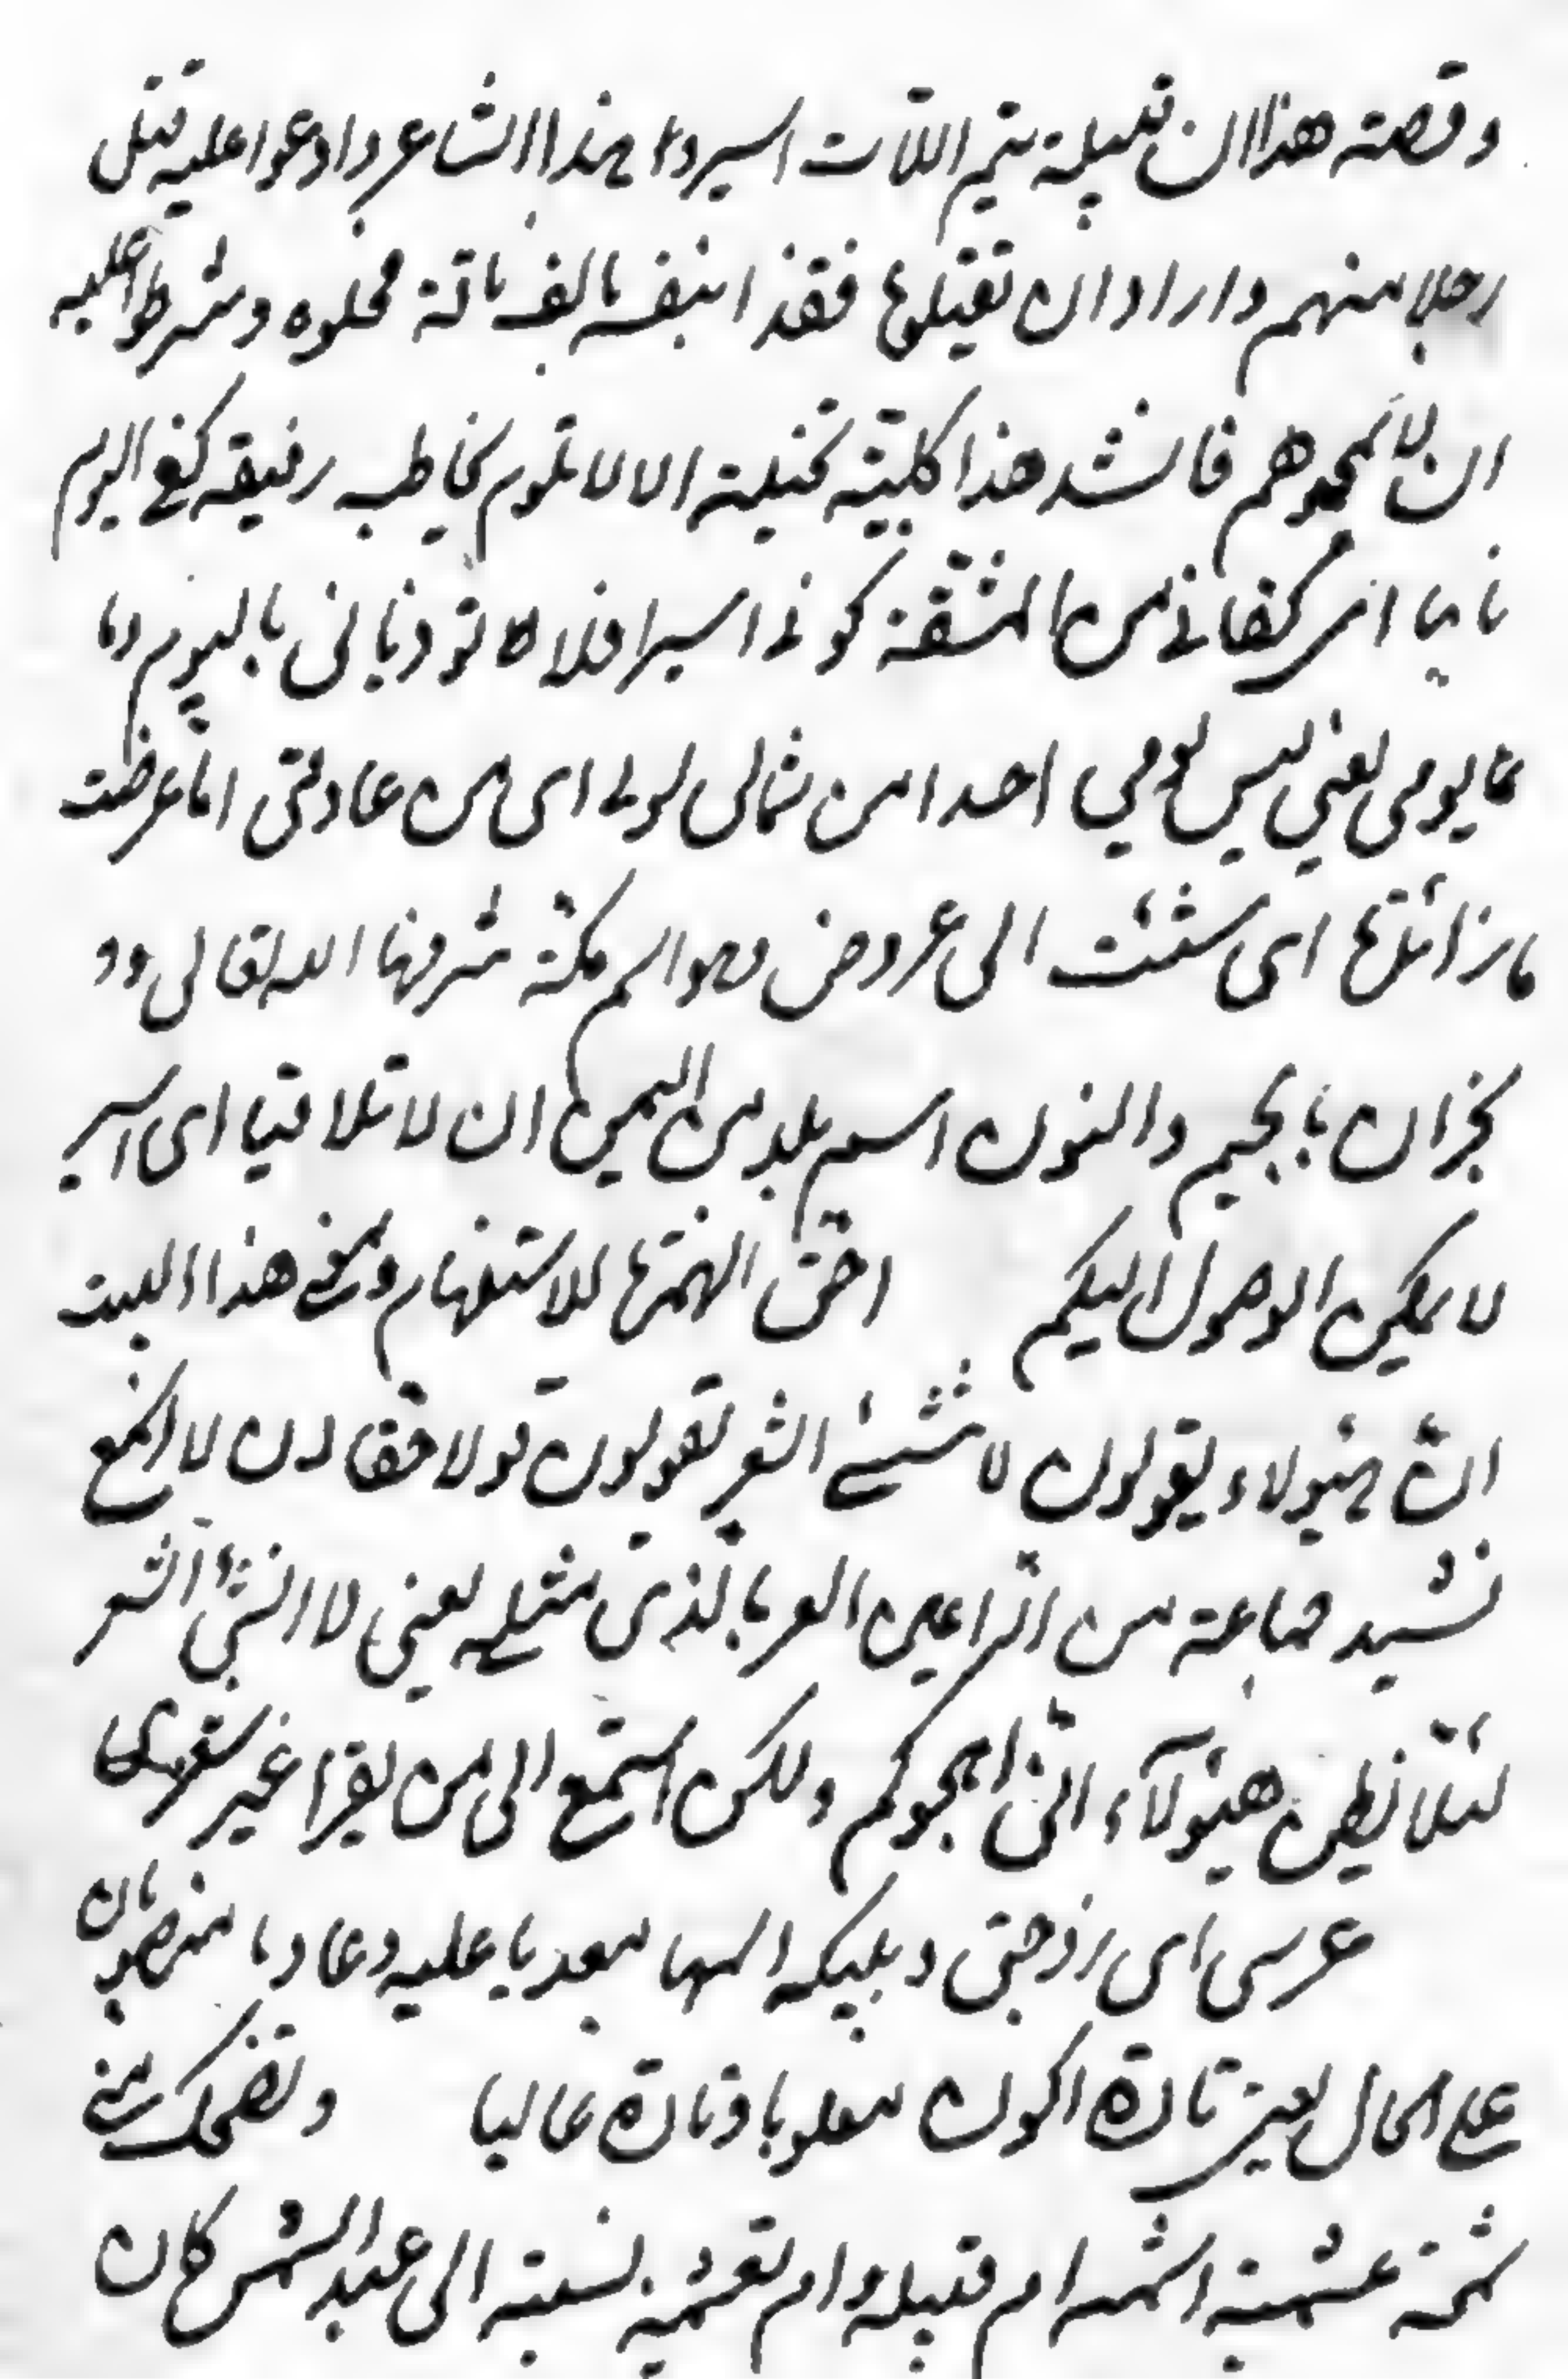 وقصته هذا ان قبيلة تيم اللات اسيروا هذا الشاعر وادعوا عليه قتل
رجلا منهم وارادا ان تقتلوها فقذا بنفسه بالف ناقة فخلوه وشرطوا عليه
ان لا يهجوهم فانشد هذا كليته تخيلة الا لا تلوم يخاطب رفيقه كفى اليوم
ما بيا اى كفانى من المشقة كونى اسيرا فلا توذيانى باليوم وما
يومى يعني ليس لومي احدا من شمالى لولى اى من عادتى اما عرضت
اى شئت الى عروض وهو اسم مكة شرفها الله تعالى
نجران بالجيم والنون اسم بلد من اليمن ان لا تلاقيا اى اسير
لا يمكن الوصول اليكم احق الهمزة للاستفهام ومعنى هذا البيت
ان هيولاء يقولون لا تنشئ الشعر تقولون قولا حقا ان لا اسمع
نشيد جماعة من الراعين العربا لذى مثله يعني لا انشئ الشعر
لئلا نظن هيئولآء انى اهجوكم ولكن استمع الى من يقرا غير شعرى
عرسى اى زوجتى ومليكه اسمها معديا عليه وعاديا منصوبان
على الحال يعنى تارة اكون مغلوبا وتارة غالبا وتضحك منى
شيخة عبشمية اسم ام قبيلة وام تعشمية نسبته الى عبد الشمس كان